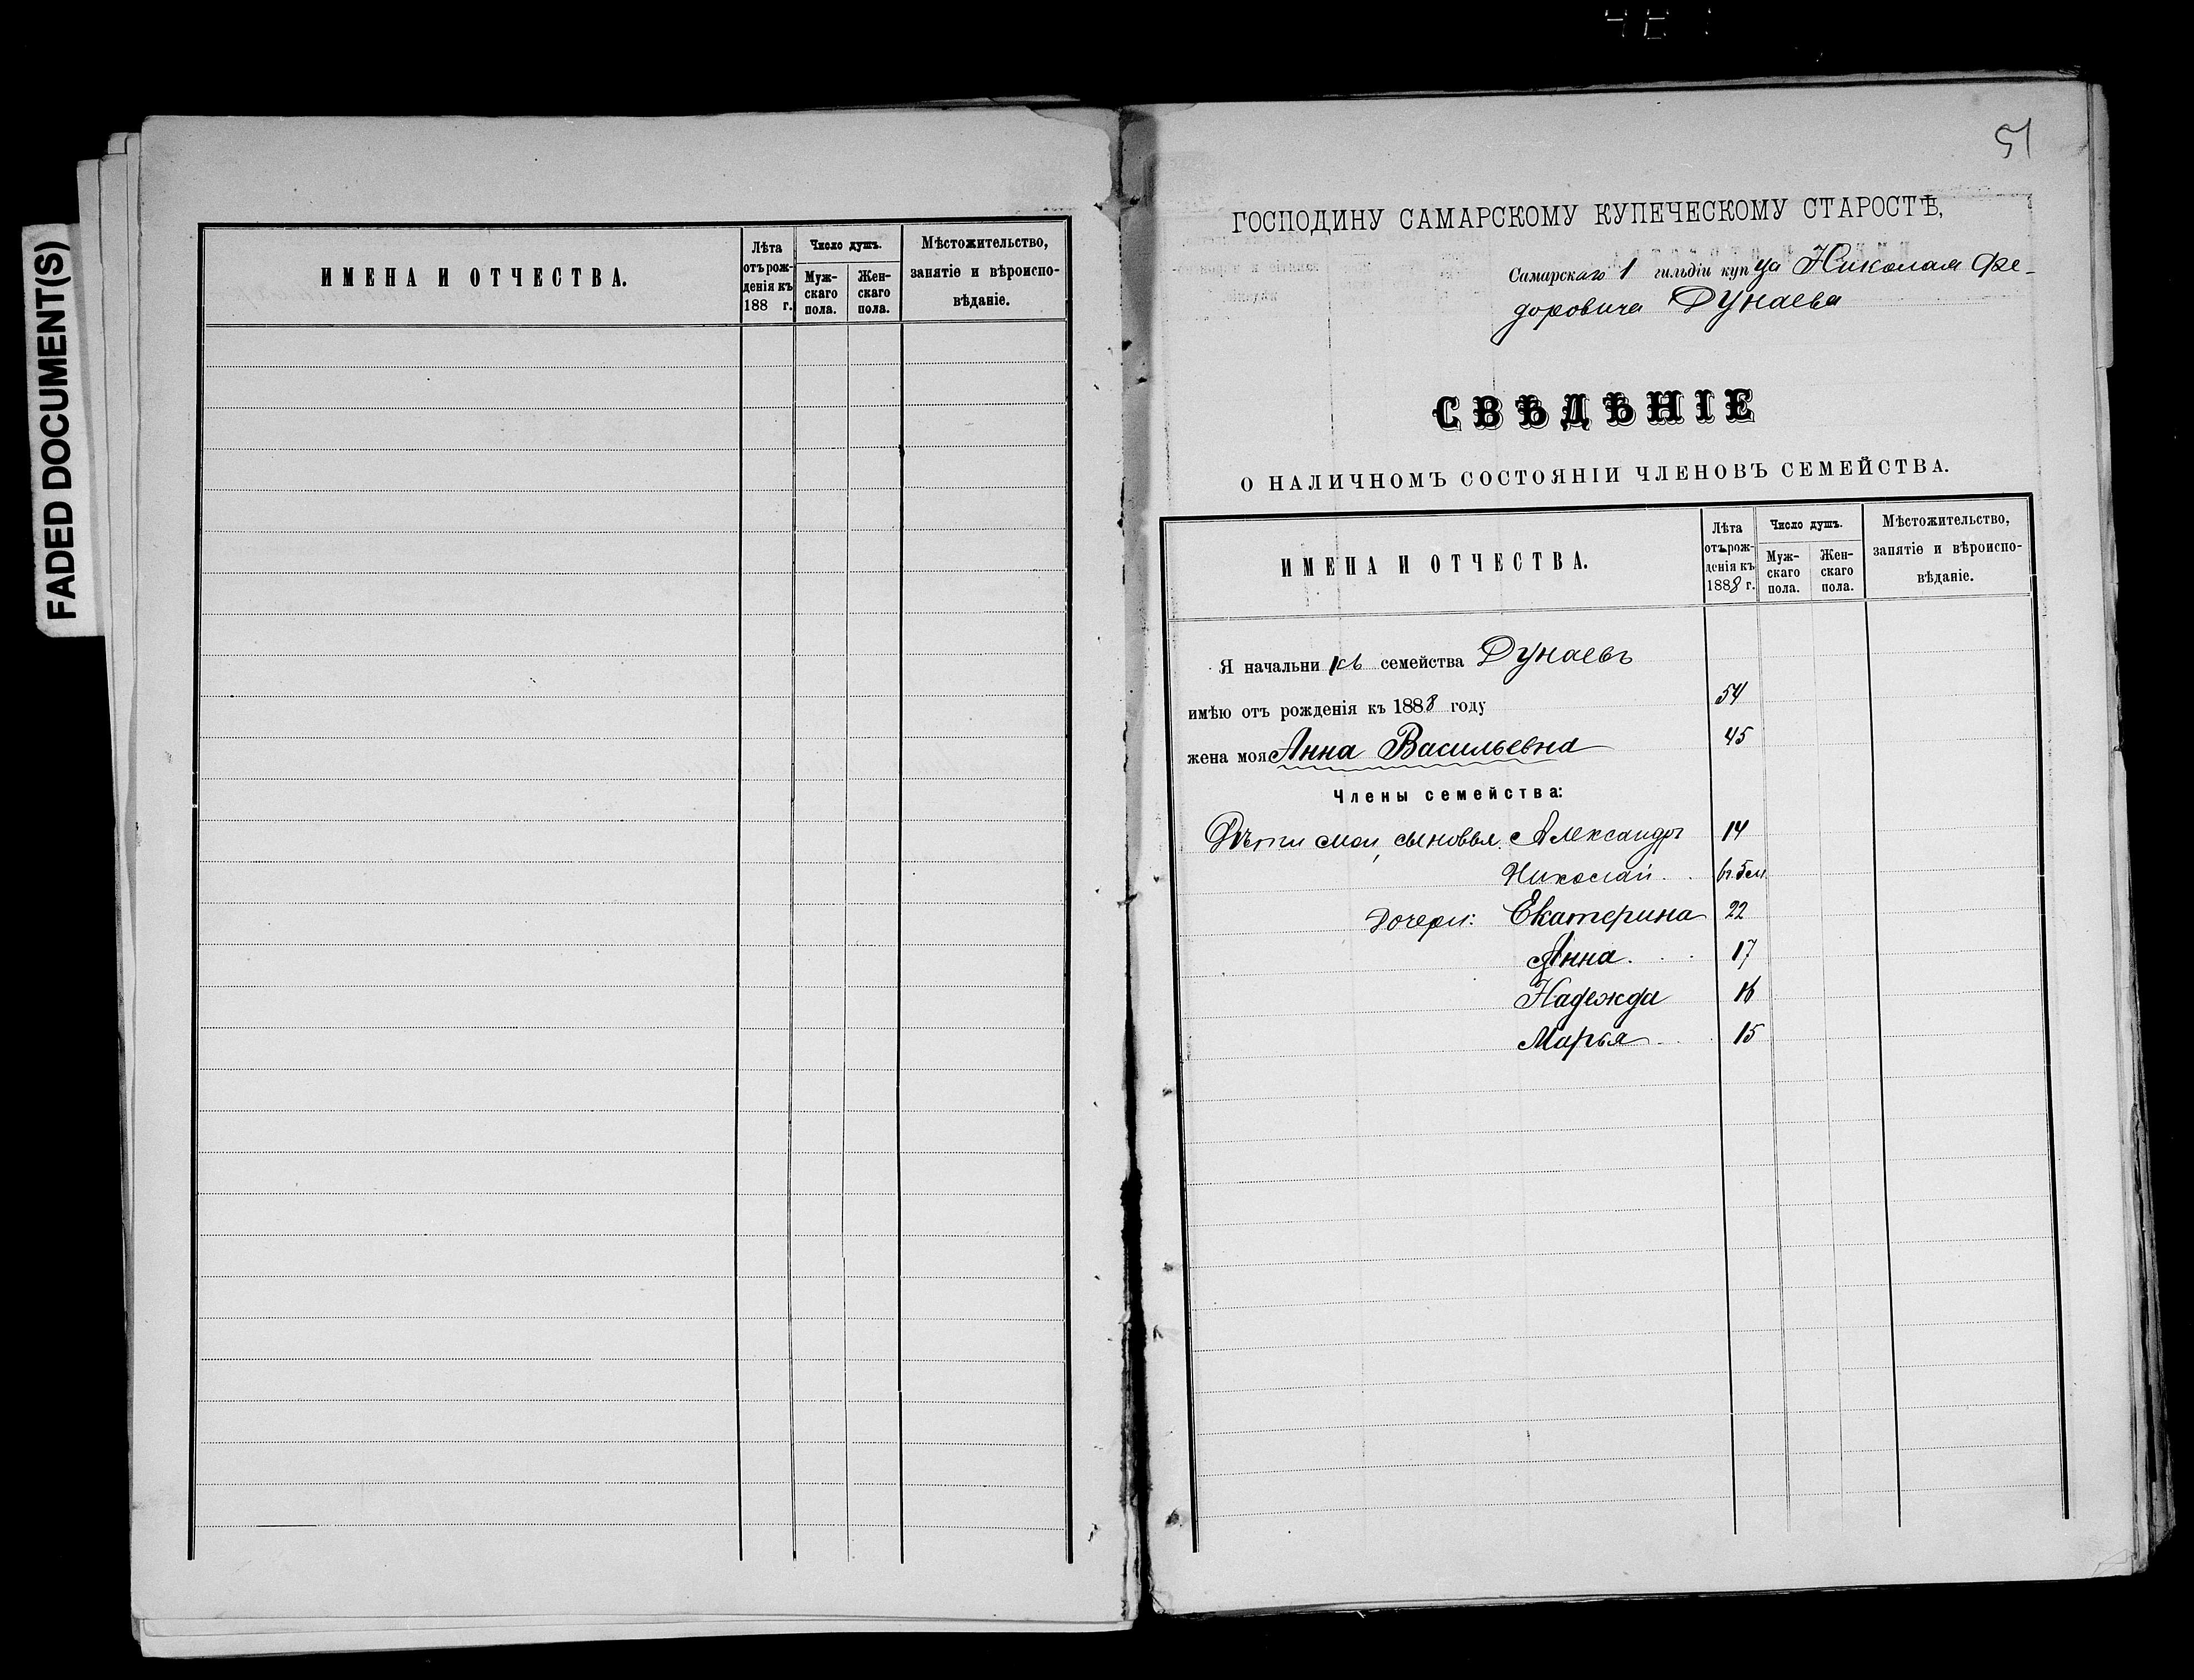 FADED DOCUMENT(S)
ИМЕНА И ОТЧЕСТВА.
Лѣта
отъ рож-
денія къ
188 г.
Число душъ.
Муж-
скаго
пола.
Жен-
скаго
пола.
Мѣстожительство,
занятіе и вѣроиспо-
вѣданіе.
51
ГОСПОДИНУ САМАРСКОМУ КУПЕЧЕСКОМУ СТАРОСТѢ,
Самарскаго 1 гильдіи купца Николая Фе-
доровича Дунаева
СВѢДѢНІЕ
О НАЛИЧНОМЪ СОСТОЯНІИ ЧЛЕНОВЪ СЕМЕЙСТВА.
ИМЕНА И ОТЧЕСТВА.
Лѣта
отъ рож-
денія къ
1888 г.
Число душъ.
Муж-
скаго
пола.
Жен-
скаго
пола.
Мѣстожительство,
занятіе и вѣроиспо-
вѣданіе.
Я начальникъ семейства Дунаевъ
имѣю отъ рожденія къ 1888 году 54
жена моя Анна Васильевна 45
Члены семейства:
Дѣти мои, сыновья: Александръ 14
Николай
Дочери: Екатерина 22
Анна 17
Надежда 16
Марья 15